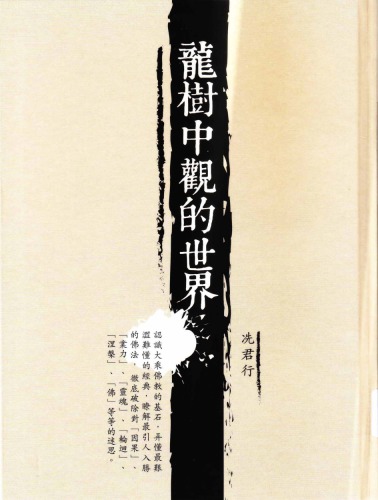 龍樹中觀的世界
冼君行
認識大乘佛教的基石，弄懂最艱
澀難懂的經典，瞭解最引人入勝
的佛法，徹底破除對「因果」、
「業力」、「靈魂」、「輪迴」、
「涅槃」、「佛」等等的迷思。